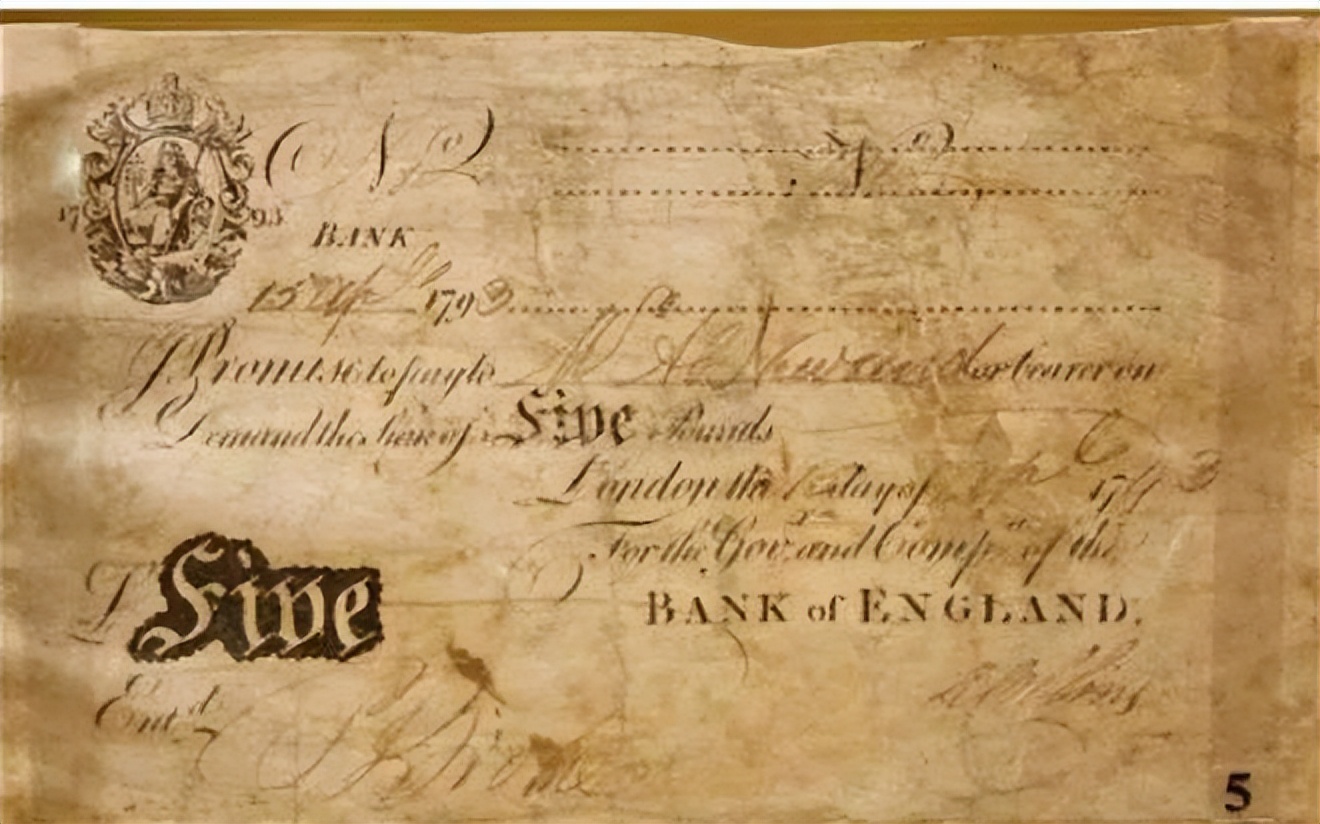 No No
17 93
BANK
15 Apl 1793
I Promise to pay to Mr Ab. Newland or bearer on
Demand the Sum of Five Pounds
London the 15 day of Apl 1793
For the Gov.r and Comp.a of the
£ Five
BANK of ENGLAND.
Ent.d
5